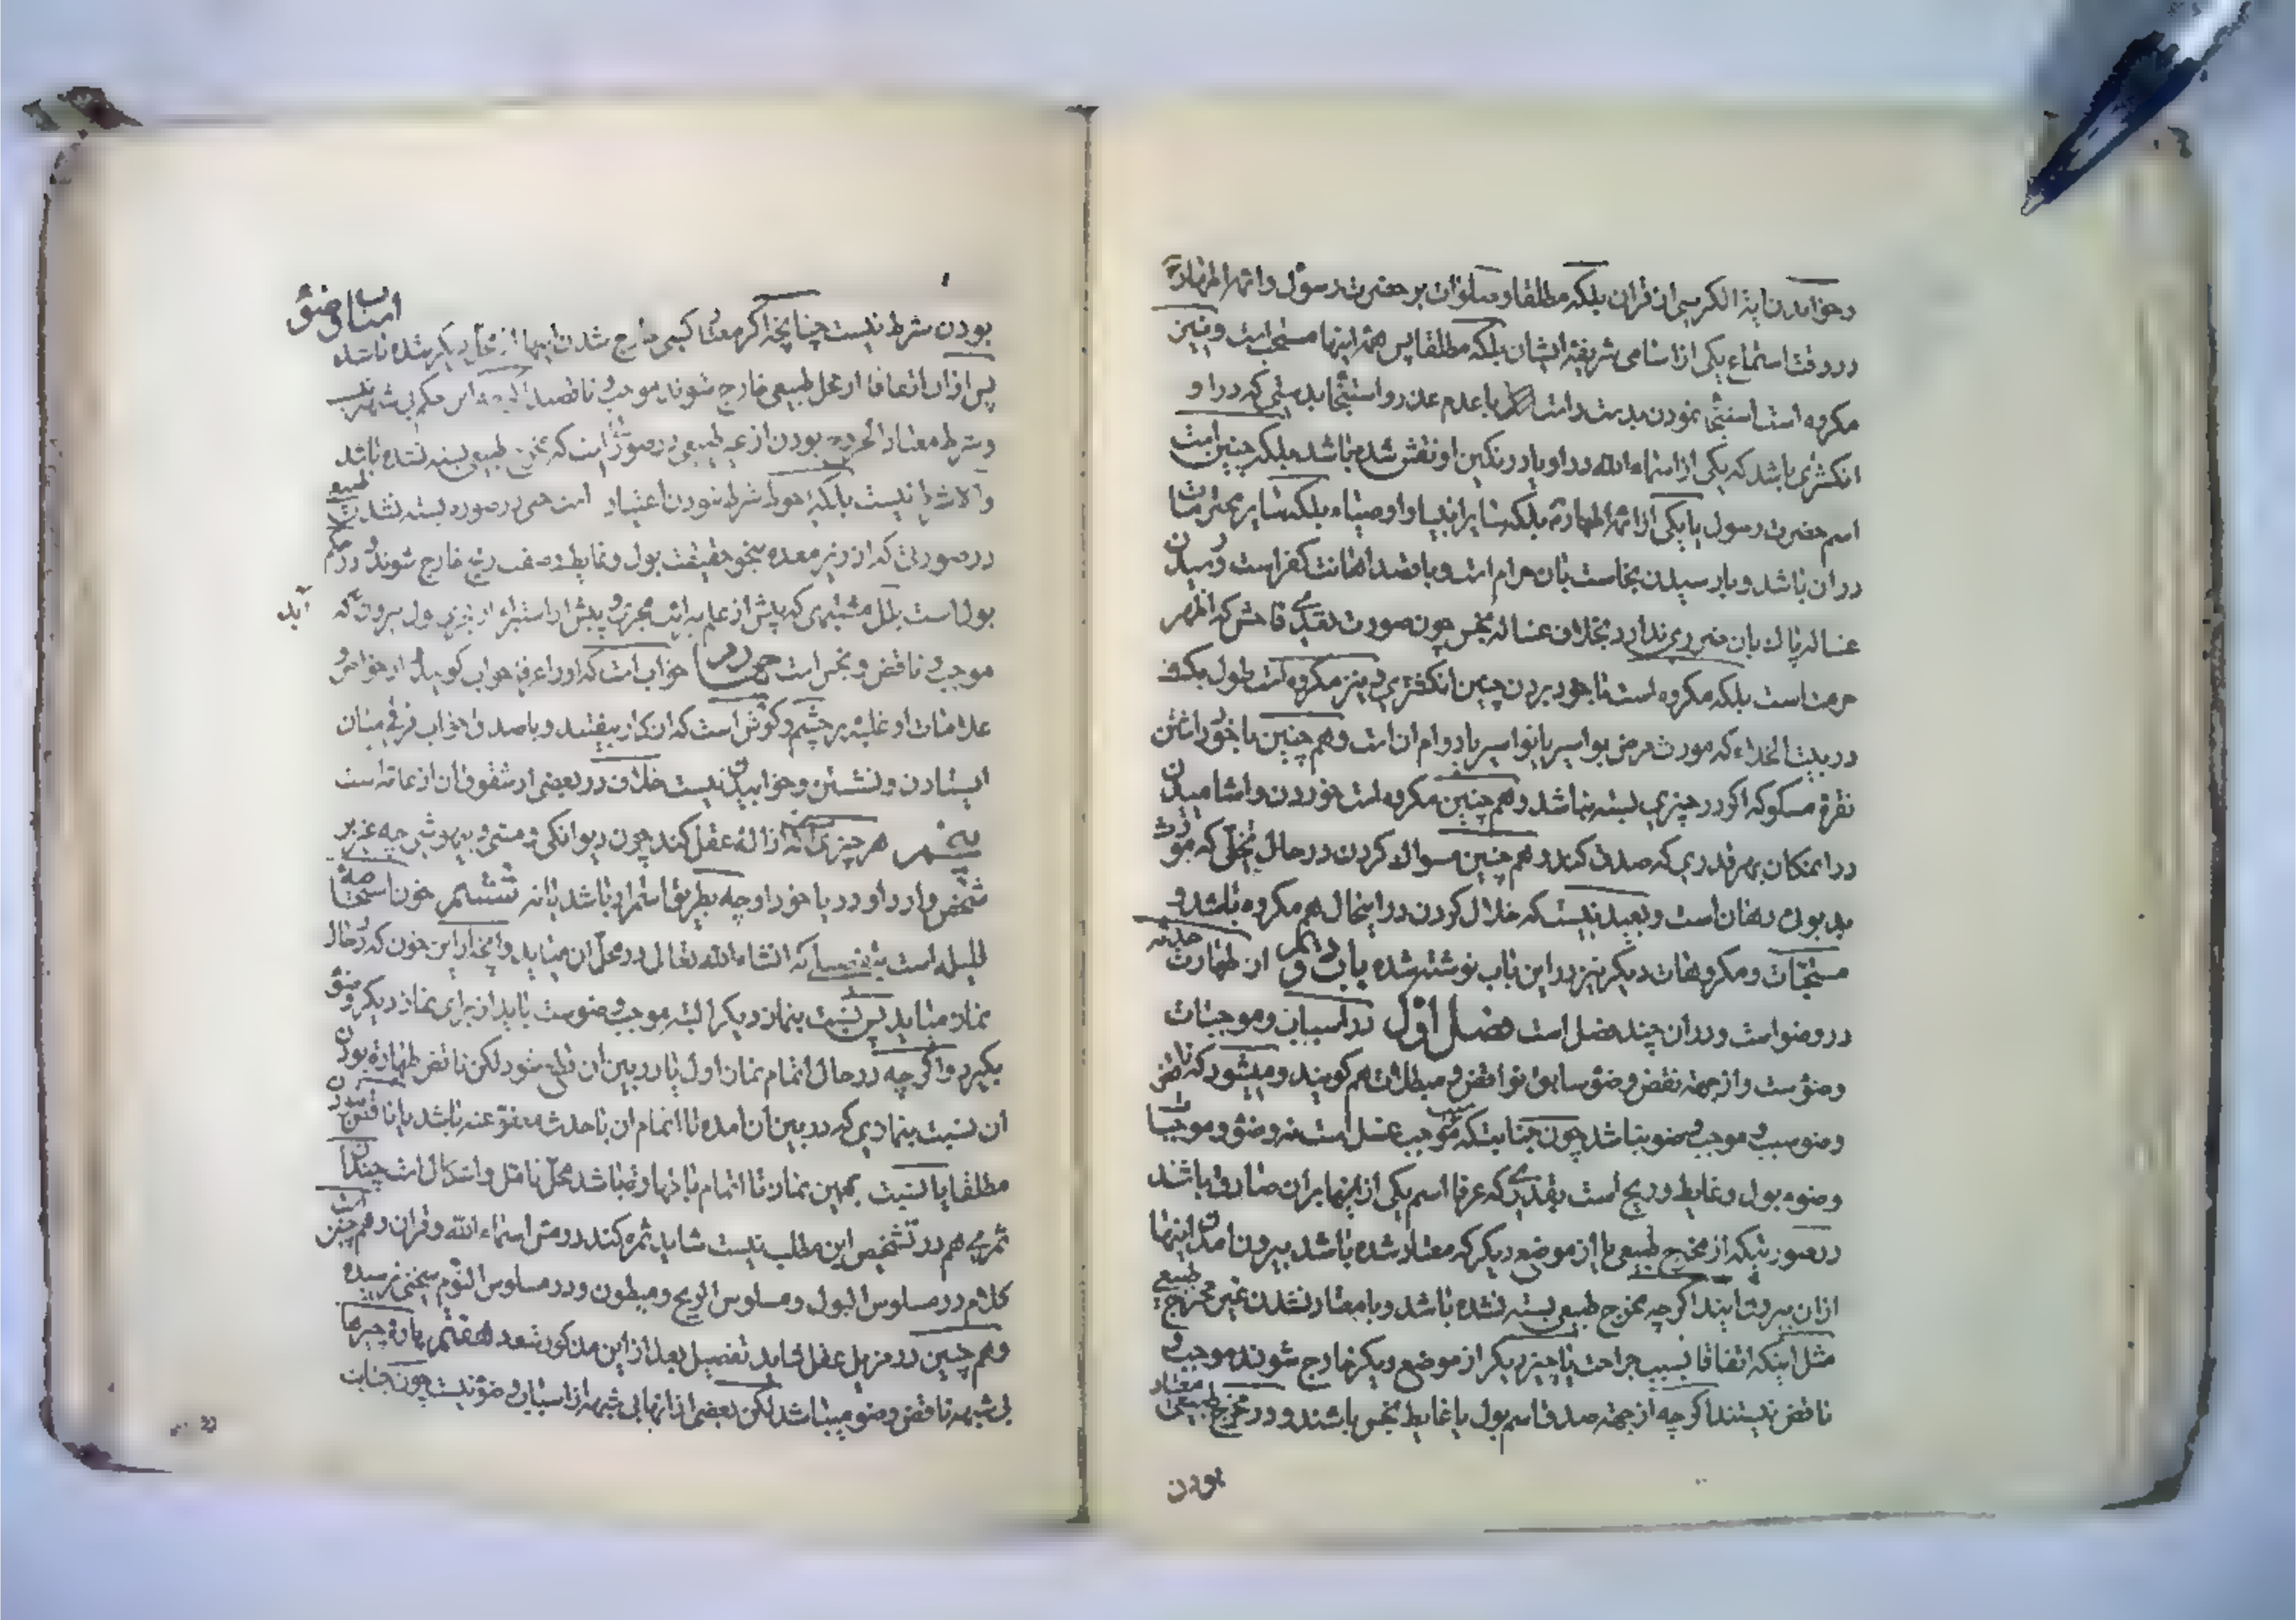 و خواندن آیة الکرسی از قرآن بلکه مطلقا و صلوات بر حضرت رسول و ائمه اطهارۀ
در وقت استماع یکی از اسامی شریفه ایشان بلکه مطلقا پس همه اینها مستحب است و نیز
مکروه است استنجا نمودن بدست راست با عدم عذر و استنجا بدستی که در او
انکشتری باشد که یکی از اسماء الله در او یا در نکین او نقش شده باشد بلکه چنین است
اسم حضرت رسول یا یکی از ائمه اطهارۀ بلکه سایر انبیا و اوصیاء بلکه سایر محترمات
در آن باشد و با رسیدن نجاست بان حرام است و با قصد اهانت کفر است و رسیدن
غساله پاک بان ضرری ندارد بخلاف غساله نجس چون صورت تعدی فاحش که اظهر
حرمت است بلکه مکروه است با خود بردن چنین انکشتری و نیز مکروه است طول مکث
در بیت الخلاء که مورث مرض بواسیر یا نواسیر یا دوام آن است و هم چنین با خود داشتن
نقره مسکوکه اکر در چیزی بسته نباشد و هم چنین مکروه است خوردن و اشامیدن
در امکان بهر قدری که صدق کند و هم چنین مسواک کردن در حال تخلی که مورث
بد بوئی دهان است و بعید نیست که خلال کردن در اینحال هم مکروه باشد و
مستحبات و مکروهات دیکر نیز در این باب نوشته شده باب دویم از طهارت حدثیه
در وضو است و در آن چند فصل است فصل اول در اسباب و موجبات
وضوست و از جهة نقض وضوء سابق نواقض و مبطلات هم کویند و میشود که ناقض
وضو سبب و موجب وضو نباشد چون جنابت که موجب غسل است نه وضو و موجبات
وضوء بول و غایط و ریح است بقدری که عرفا اسم یکی از اینها بر آن صادق باشد
در صورتیکه از مخرج طبیعی یا از موضع دیکر که معتاد شده باشد بیرون آمدن اینها
از آن بیرون آیند اکر چه مخرج طبیعی بسته نشده باشد و با معتاد نشدن غیر مخرج طبیعی
مثل اینکه اتفاقا بسبب جراحت یا چیز دیکر از موضع دیکر خارج شوند موجب و
ناقض نیستند اکر چه از جهة صدق اسم بول یا غایط نجس باشند و در مخرج طبیعی معتاد
بودن
اسباب وضو
بودن شرط نیست چنانچه اکر معتاد کسی خارج شدن اینها از محل دیکر شده باشد
پس از آن اتفاقا از محل طبیعی خارج شوند موجب و ناقضند این حکم بی شبهه
و شرط معتاد الخروج بودن از غیر طبیعی در صورتی است که مخرج طبیعی بسته نشده باشد
و الا شرط نیست بلکه احوط شرط نبودن اعتیاد است حتی در صورت بسته نشدن طبیعی
در صورتی که از زیر معده بنحو حقیقت بول و غایط و صفت ریح خارج شوند و در حکم
بول است بلل مشتبهی که پیش از علم به برائت مجری و پیش از استبراء از بول بیرون آید که
موجب و ناقض و نجس است چهارم خواب است که او را عرفا خواب کویند و از خواص و
علامات او غلبه بر چشم و کوش است که از کار بیفتند و با صدق خواب فرقی میان
ایستادن و نشستن و خوابیدن نیست خلاف در بعضی از شقوق آن از عامه است
پنجم هر چیزی که ازاله عقل کند چون دیوانکی و مستی و بیهوشی چه غیر
شخص وارد آورد یا خود او چه بطریق استمرار باشد یا نه ششم خون استحاضه
قلیله است بتفصیلی که انشاء الله تعالی در محل آن میاید و اینجا از این خون که در حال
نماز میاید پس نسبت بنماز دیکر البته موجب وضوست باید از برای نماز دیکر وضو
بکیرد و اکر چه در حال اتمام نماز اول یا در بین آن قطع شود لکن ناقض طهارة بودن
آن نسبت بنمازی که در بین آن آمده تا اتمام آن با حدث معفو عنه باشد یا ناقض نبودن
مطلقا یا نسبت بهمین نماز تا اتمام با طهارت باشد محل تامل و اشکال است چندان
ثمری هم در تشخیص این مطلب نیست شاید ثمره کند در مس اسماء الله و قرآن و هم چنین است
کلام در مسلوس البول و مسلوس الریح و مبطون و در مسلوس النوم سخنی نرسیده
و هم چنین در مزیل عقل شاید تفصیل بعد از این مذکور شود هفتم پارۀ چیزها
بی شبهه ناقض وضو میباشد لکن بعضی از آنها بی شبهه از اسباب وضو نیست چون جنابت